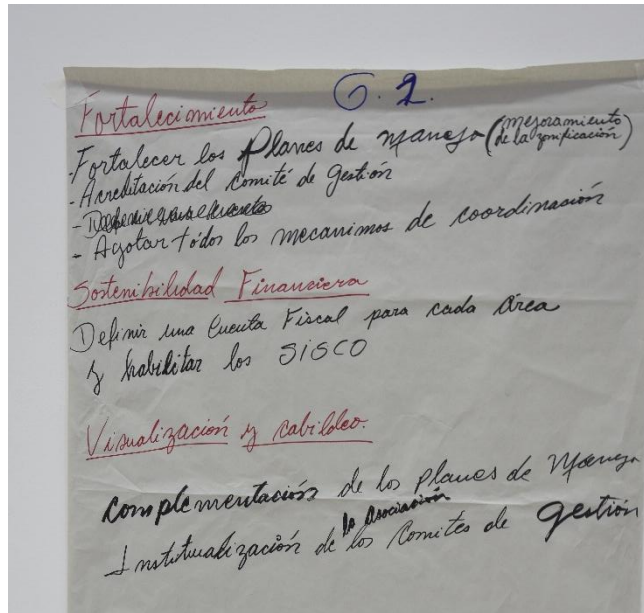 G. 2.
Fortalecimiento
- Fortalecer los Planes de manejo (mejoramiento de la zonificación)
- Acreditación del Comité de Gestión
- Agotar tódos los mecanimos de coordinación
Sostenibilidad Financiera
Definir una Cuenta Fiscal para cada Área
y habilitar los SISCO
Visualización y cabildeo.
Complementación de los planes de Manejo
Institutualización de la asociación los Comites de gestión